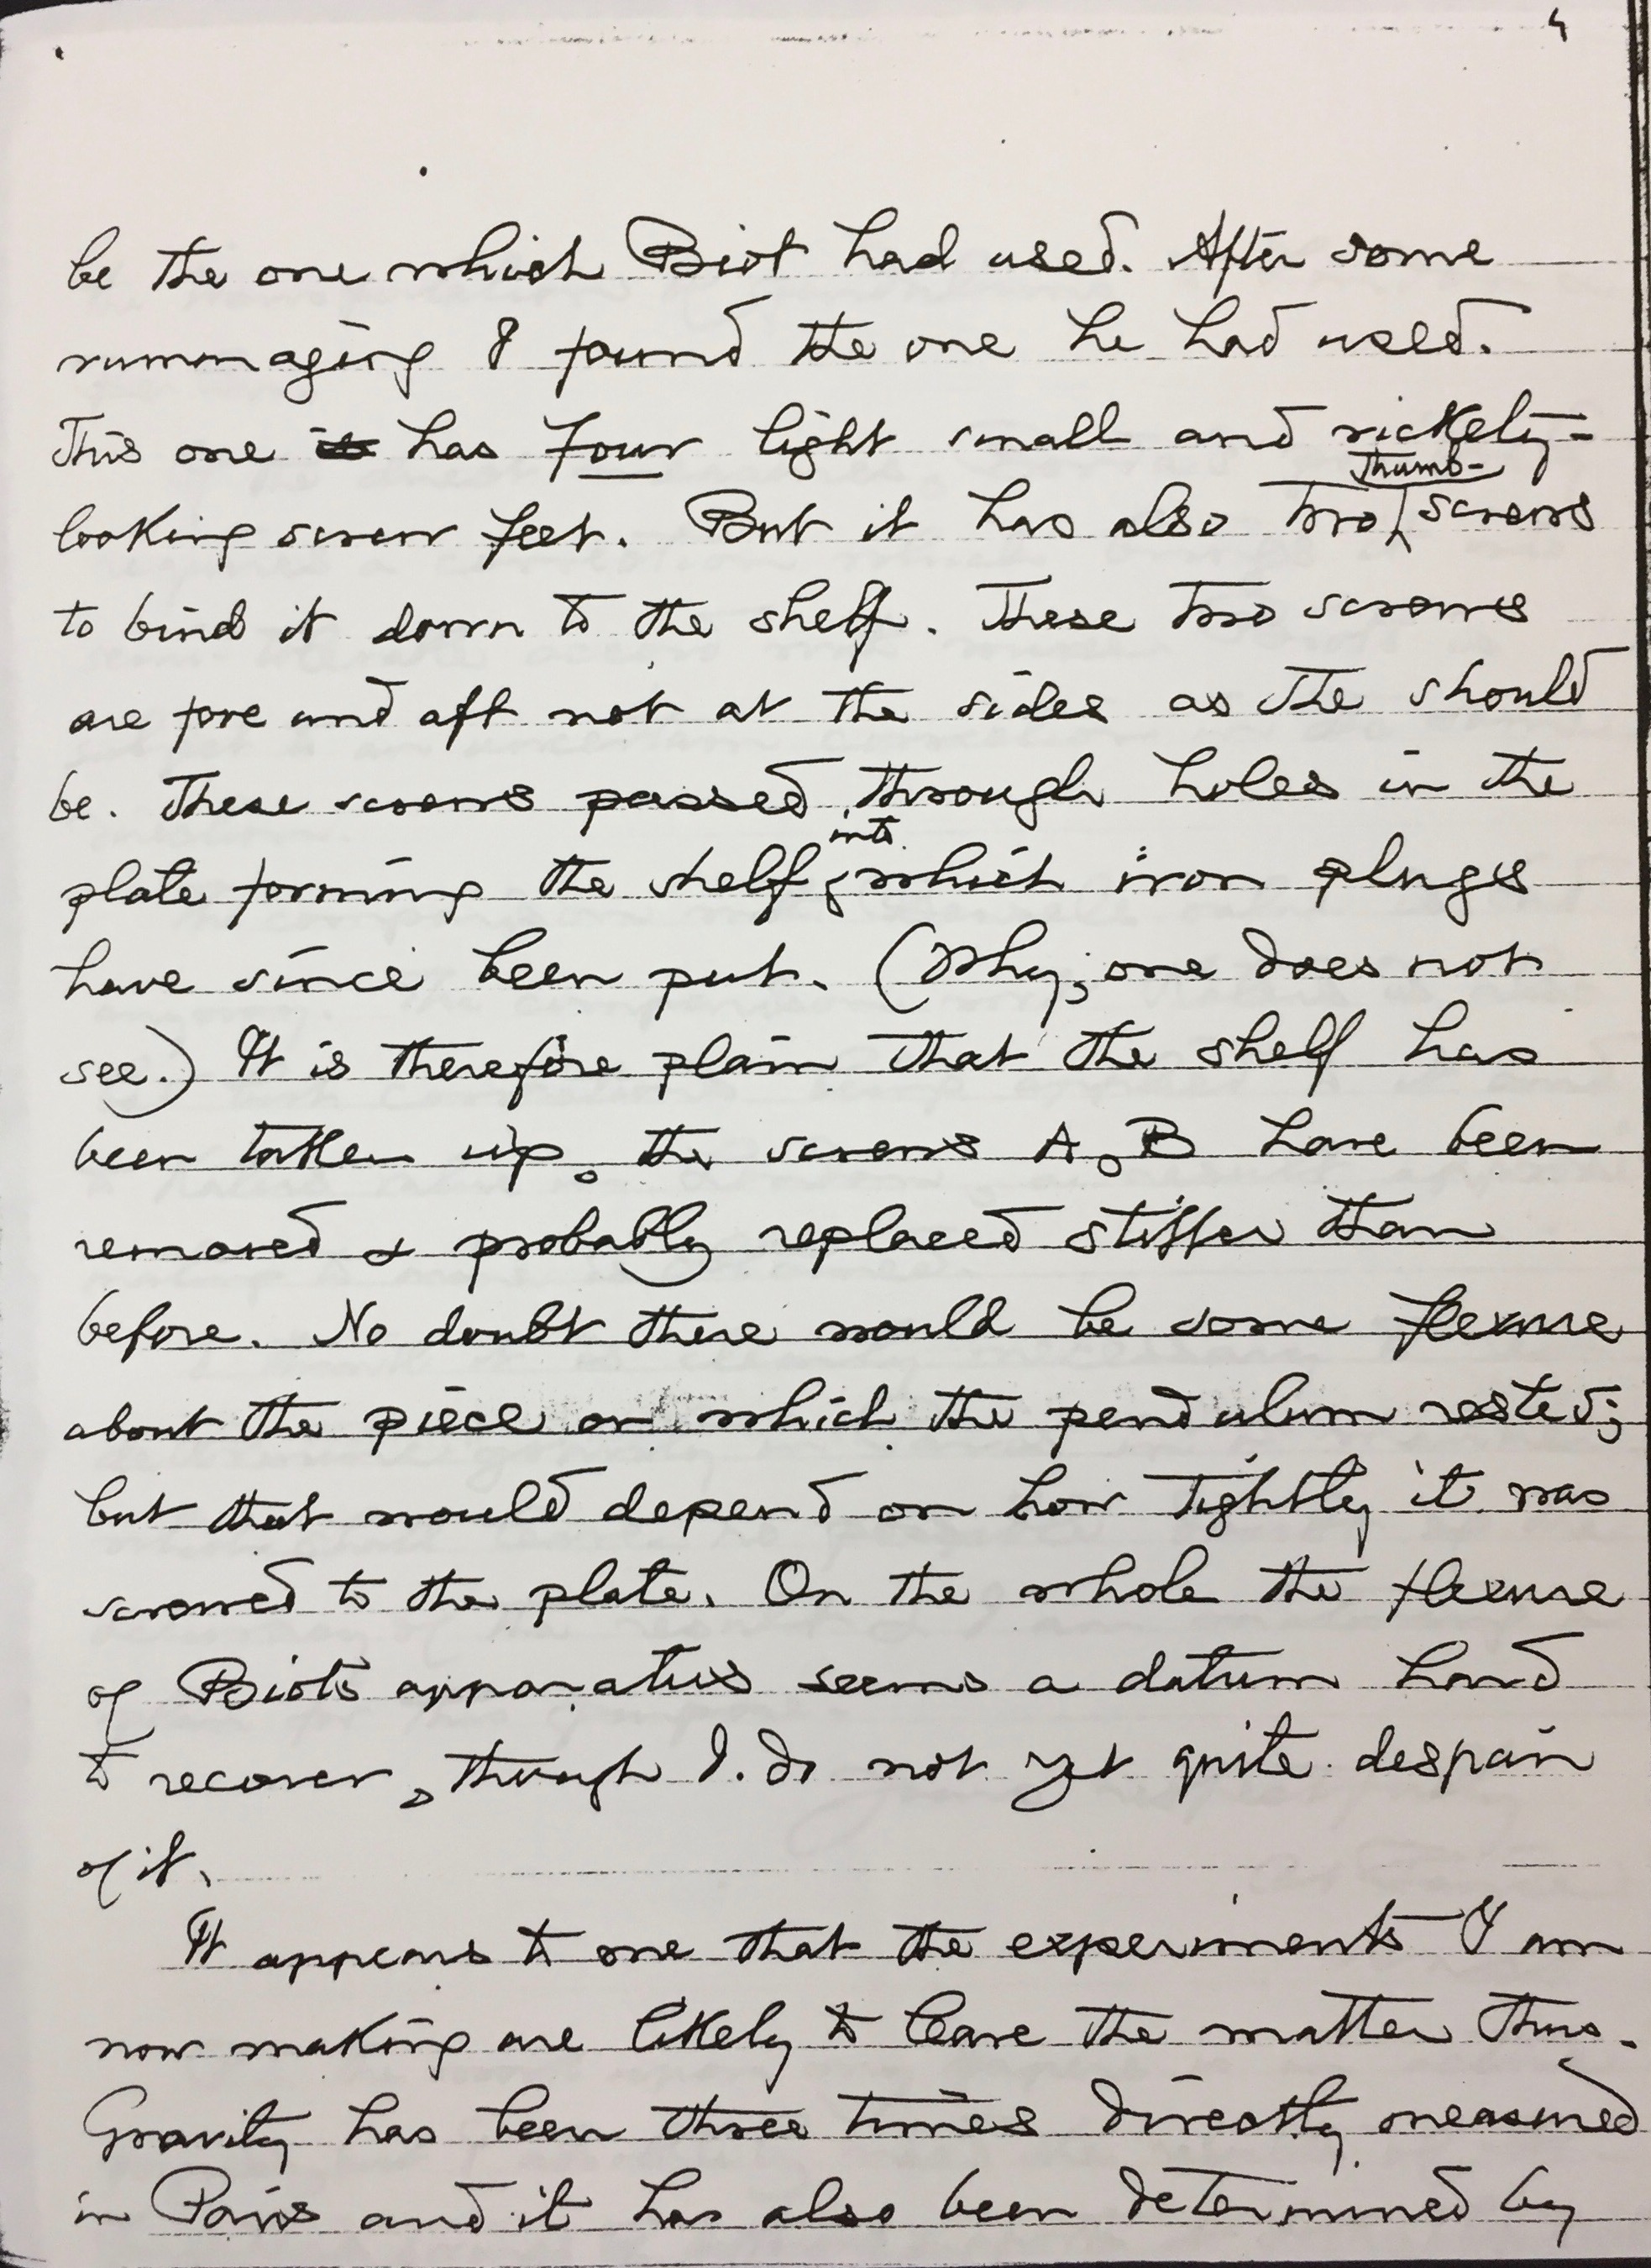 4
be the one which Biot had used. After some
rummaging I found the one he had used.
This one is has four light small and rickety-
thumb-
looking screw feet. But it has also two screws
to bind it down to the shelf. These two screws
are fore and aft not at the sides as the should
be. These screws passed through holes in the
into
plate forming the shelf, which iron plugs
have since been put. (Why, one does not
see.) It is therefore plain that the shelf has
been taken up, the screws A, B have been
removed & probably replaced stiffer than
before. No doubt there would be some flexure
about the piece on which the pendulum rested;
but that would depend on how tightly it was
screwed to the plate. On the whole the flexure
of Biot's apparatus seems a datum hard
to recover, though I do not yet quite despair
of it.
It appears to me that the experiments I am
now making are likely to leave the matter thus.
Gravity has been three times directly measured
in Paris and it has also been determined by